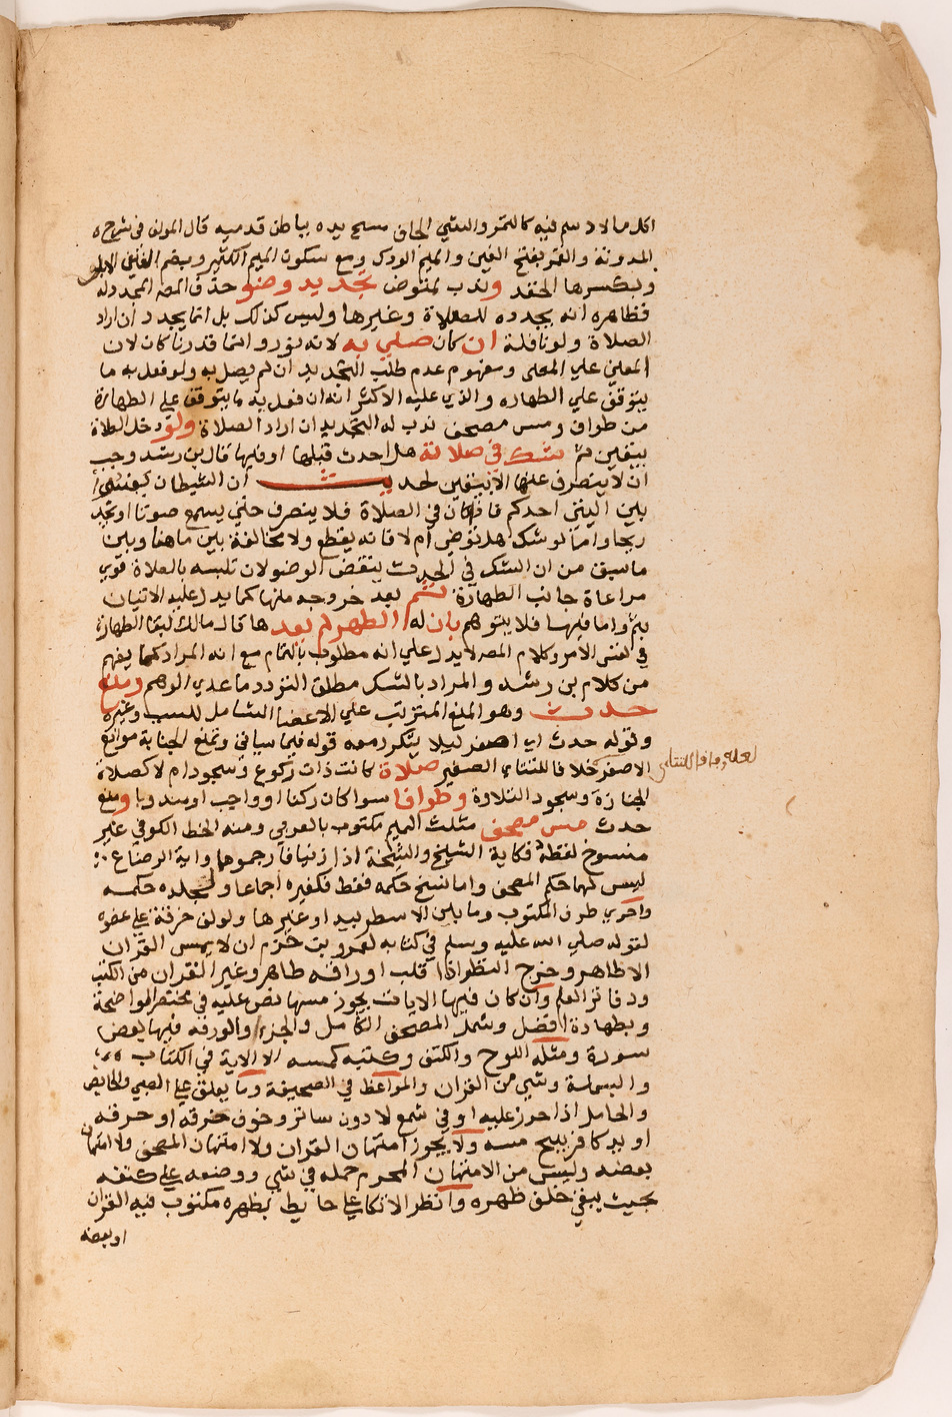 اكل مالا دسم فيه كالتمر والشي الجاف مسح يده بباطن قدميه قال المولف في شرح
المدونة والغمر بفتح الغين والميم الودك ومع سكون الميم الكثير وبضم الغين الابله
وبكسرها الحقد وندب لمتوض تجديد وضو حذف المص المجدد له
فظاهره انه يجدده للصلاة وغيرها وليس كذلك بل انما يجدد ان اراد
الصلاة ولو نافلة ان كان صلي به لانه نور وانما قدرنا كان لان
المعني علي المضي ومفهوم عدم طلب التجديد ان لم يصل به ولو فعل به ما
يتوقف علي الطهاره والذي عليه الاكثر انه ان فعل به ما يتوقف علي الطهارة
من طواف ومس مصحف ندب له التجديد ان اراد الصلاة ولو دخل الصلاة
بيقين ثم شك في صلاته هل احدث قبلها او فيها قال بن رشد وجب
ان لا ينصرف عنها الا بيقين لحديث ان الشيطان
بين اليتي احدكم فاذا كان في الصلاة فلا ينصرف حتي يسمع صوتا او يجد
ريحا واما لو شك هل توضي ام لا فانه يقطع ولا مخالفة بين ما هنا وبين
ما سبق من ان الشك في الحدث ينقض الوضو لان تلبسه بالصلاة قوي
مراعاة جانب الطهارة ثم بعد خروجه منها كما يدل عليه الاتيان
بثم واما فيها فلا يتوهم بان له الطهر لم يعدها قال مالك لبقا الطهارة
في نفس الامر وكلام المص لا يدل علي انه مطلوب بالتمام مع انه المراد كما يفهم
من كلام بن رشد والمراد بالشك مطلق التردد ما عدي الوهم ومنع
حدث وهو المنع المترتب علي الاعضا الشامل للسبب وغيره
وقوله حدث اي اصغر ليلا يتكرر معه قوله فيما ياتي وتمنع الجنابة موانع
الاصغر خلافا للتتاي الصغير صلاة كانت ذات ركوع وسجود ام لا كصلاة
لعله وفاقا للتتاي
الجنازة وسجود التلاوة وطوافا سوا كان ركنا او واجب او مندوبا ومنع
حدث مس مصحف مثلث الميم مكتوب بالعربي ومنه الخط الكوفي غير
منسوخ لفظه فكاية الشيخ والشيخة اذا زنيا فارجموهما واية الرضاع
ليس لهما حكم المصحف واما نسخ حكمه فقط فكغيره اجماعا ولجلده حكمه
واحري طرف المكتوب وما بين الاسطر بيد او غيرها ولو لف خرقة علي عضوه
لقوله صلي الله عليه وسلم في كتابه لعمرو بن حزم ان لا يمس القران
الا طاهر وخرج النظر اذا قلب اوراقه طاهر وغير القران من الكتب
ودفاتر العلم وان كان فيها الايات يجوز مسها نص عليه في مختصر الواضحة
وبطهارة افضل وشمل المصحف الكامل والجزء والورقه فيها بعض
سورة ومثله اللوح والكتف وكتبه كمسه الا الاية في الكتاب
والبسملة وشي من القران والمواعظ في الصحيفة وما يعلق علي الصبي والحايض
والحامل اذا حرز عليه او في شمع لا دون ساتر وخوف خرقه او حرقه
او يد كافر يبيح مسه ولا يجوز امتهان القران ولا امتهان المصحف ولا امتهان
بعضه وليس من الامتهان المحرم حمله في شي ووضعه علي كتفه
بحيث يبقي خلف ظهره وانظر الاتكا علي حايط بظهره مكتوب فيه القران
او بعضه